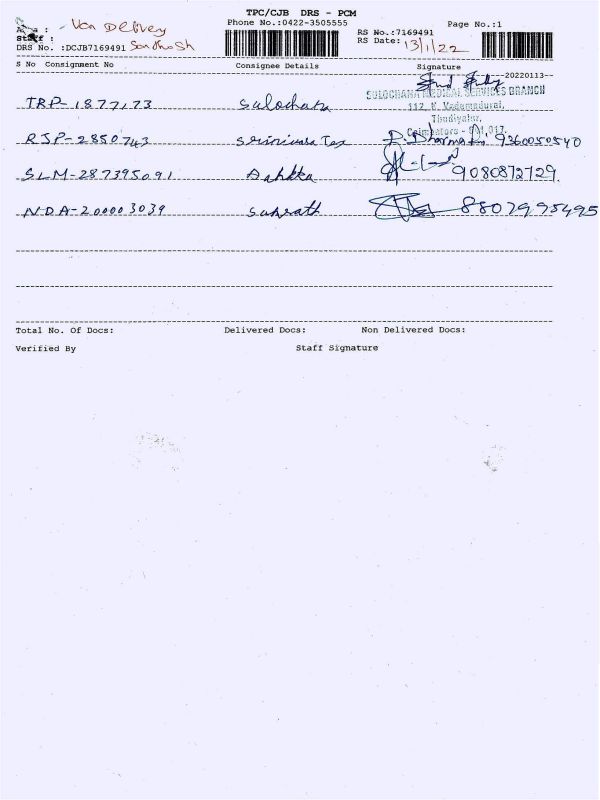 TPC/CJB DRS - PCM
Area : - Van Delivery
Phone No.:0422-3505555
Page No.:1
Staff :
RS No.:7169491
DRS No. :DCJB7169491 Santhosh
RS Date: 13/1/22
S No Consignment No Consignee Details Signature
20220113
TRP-1877173 Sulochana
SULOCHANA MEDICAL SERVICES BRANCH
112, K. Vadamadurai,
Thudiyalur,
Coimbatore - 641 017.
RJP-2850743 Srinivasa Tex 9360050540
SLM-287395091 9080872729
NDA-200003039 8807995495
Total No. Of Docs: Delivered Docs: Non Delivered Docs:
Verified By Staff Signature